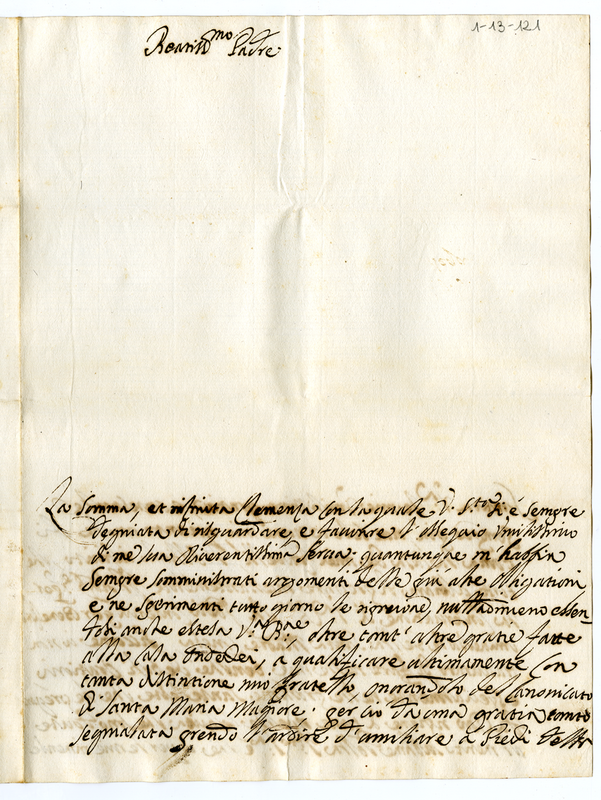 1-13-121
Beatiss.mo Padre
La somma, et infinita Clemenza con la quale V. S.tà si è sempre
degniata di risguardare, e favorire l'ossequio umilissimo
di me sua Riverentissima serva; quantunque m'habbia
sempre somministrati argomenti delle più alte obligationi
e ne sperimenti tutto giorno le impressioni, nulladimeno essen
dosi anche estesa V.a B.ne, oltre tant'altre gratie fatte
alla Casa Ondedei, a qualificare ultimamente con
tanta distintione mio fratello, onorandolo del Canonicato
di Santa Maria Magiore; per ciò da una gratia tanto
segnialata prendo l'ardire d'umiliare a Piedi della